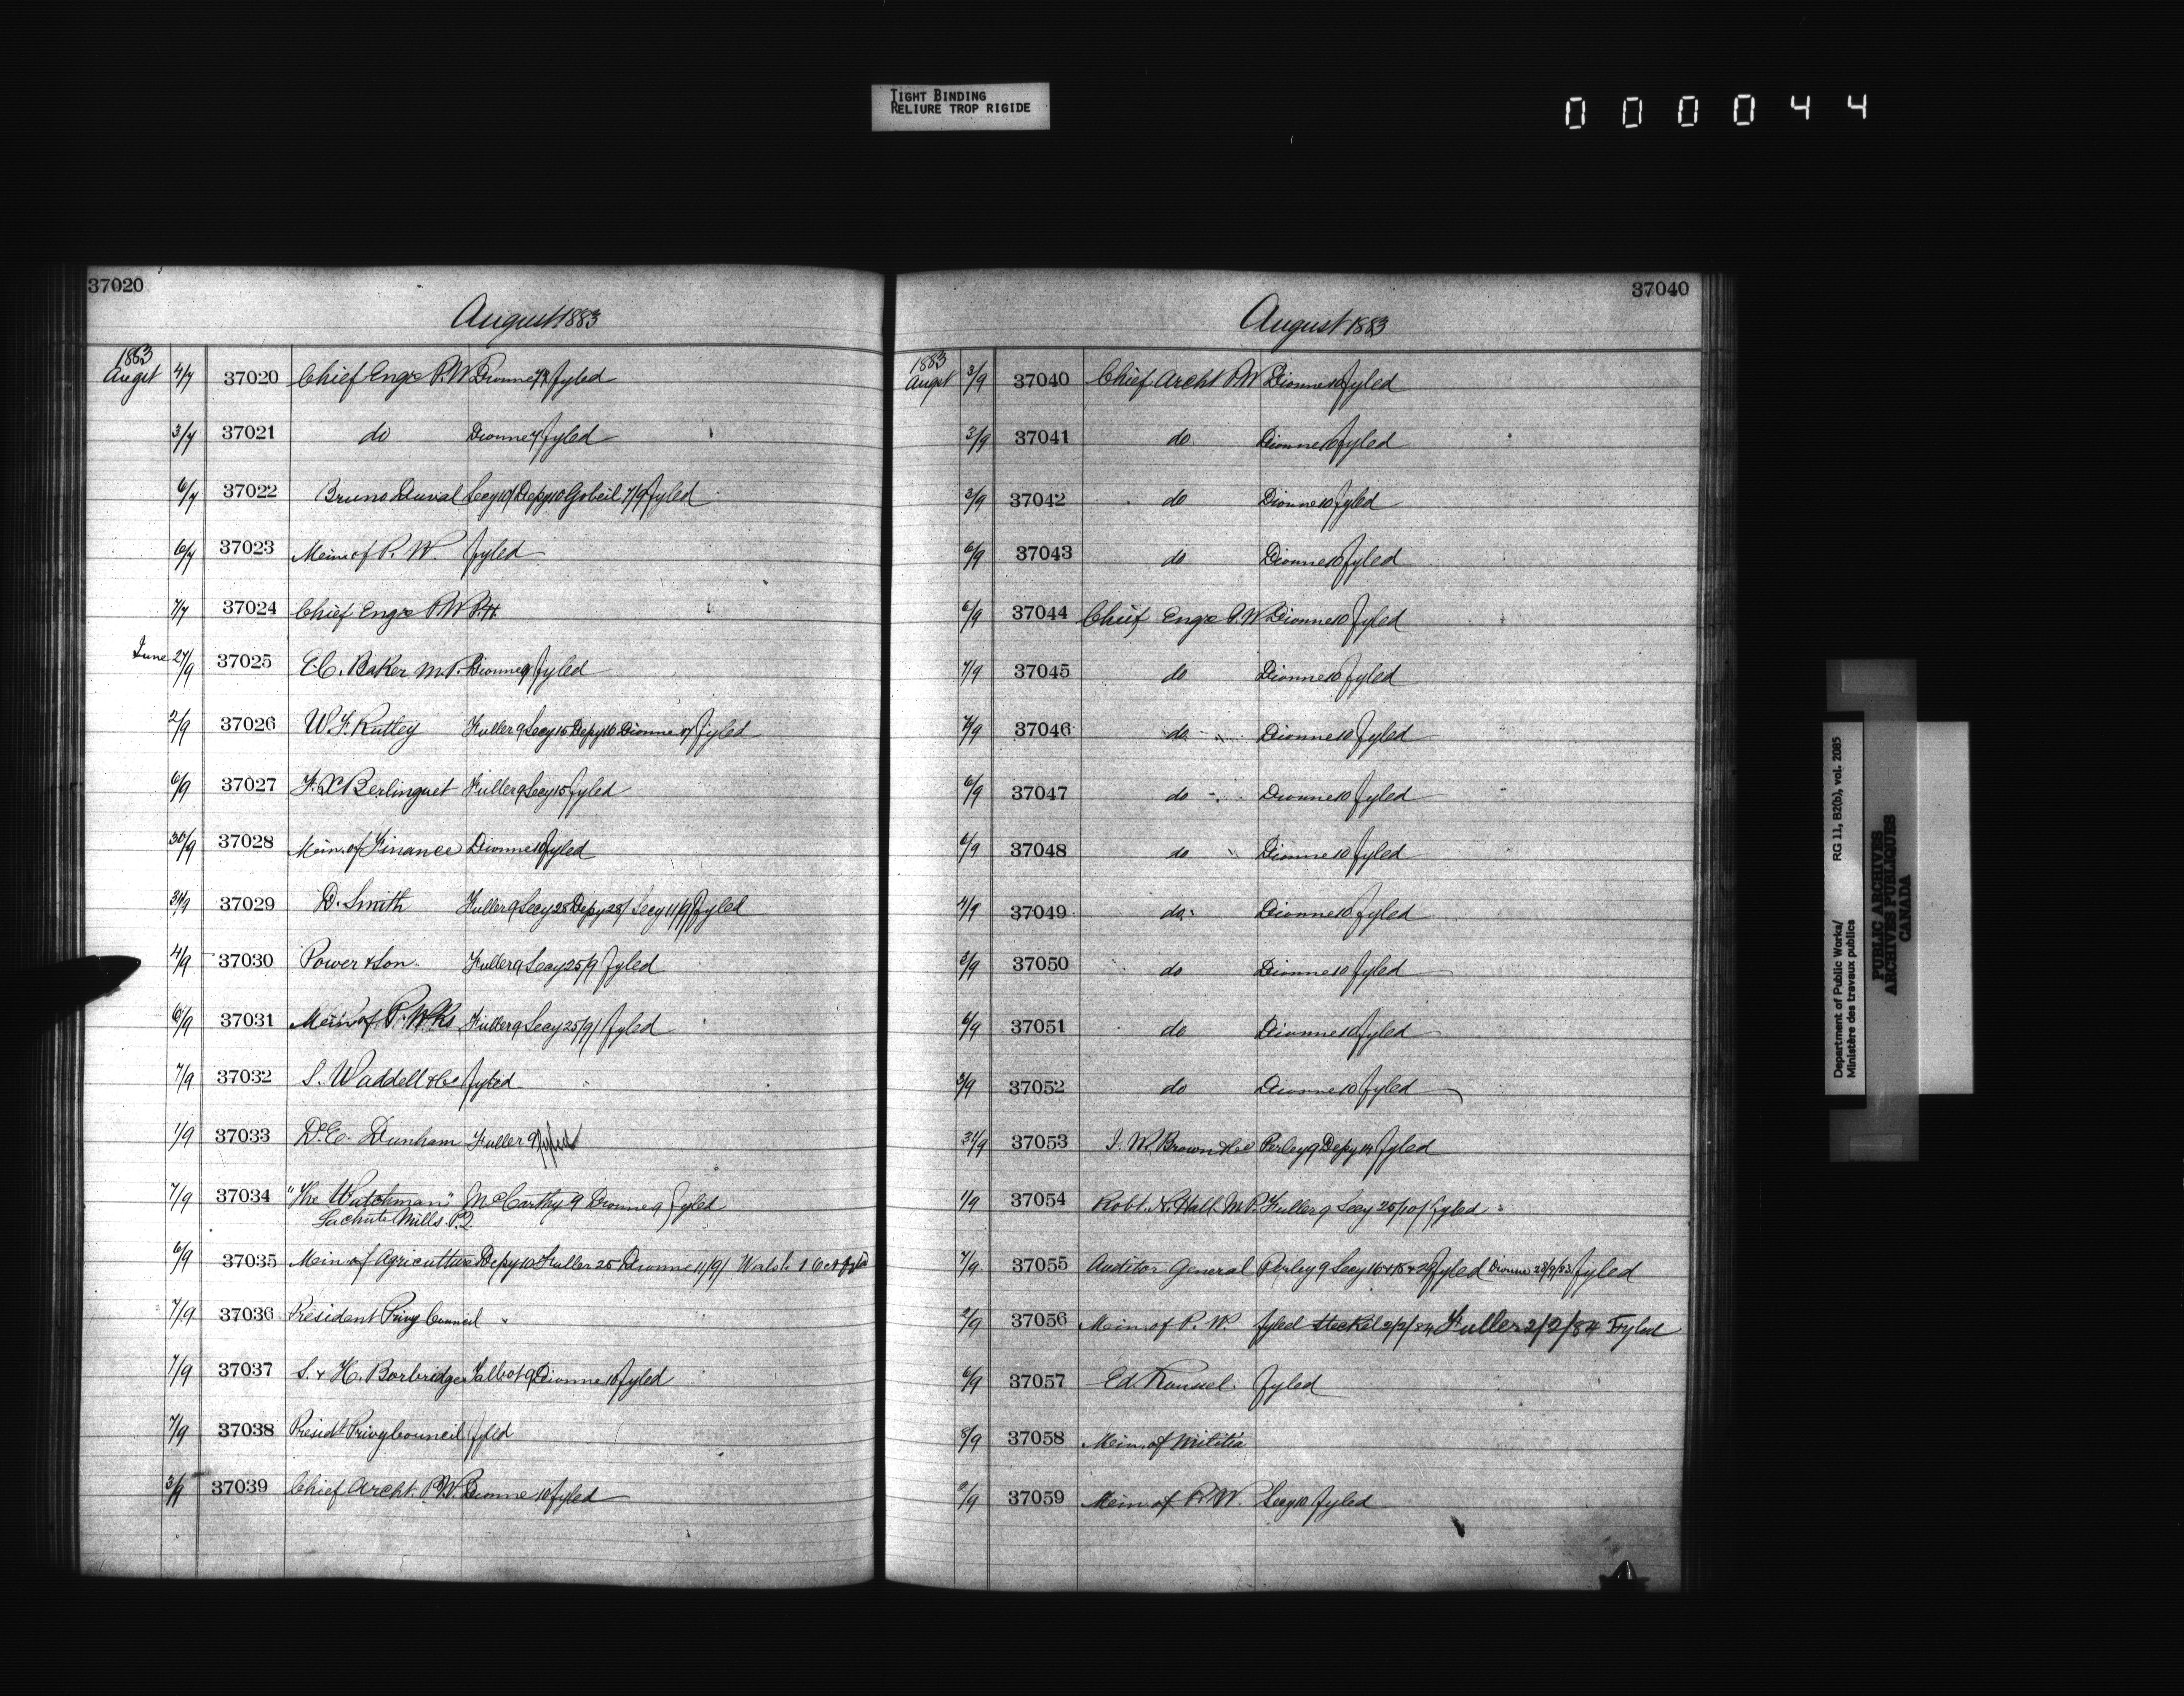 TIGHT BINDING
RELIURE TROP RIGIDE
0 0 0 0 4 4
37020
August 1883
1883
Augst 4/7 37020 Chief Engr P.W Dionne 7/9 fyled
3/7 37021 do Dionne 7 fyled
6/7 37022 Bruno Duval Secy 10/ Depy 10 Gobeil 7/9 fyled
6/7 37023 Min of P. W. fyled
7/7 37024 Chief Engr P.W
June 27/9 37025 E.C. Baker M.P. Dionne 9 fyled
2/9 37026 W.F. Rutley Fuller 9 Secy 15 Depy 16 Dionne 17 fyled
6/9 37027 F.X Berlinguet Fuller 9 Secy 15 fyled
30/9 37028 Min. of Finance Dionne 10 fyled
31/9 37029 D. Smith Fuller 9 Secy 25 Depy 28/ Secy 11/9/ fyled
4/9 37030 Power & Son Fuller 9 Secy 25/9 fyled
6/9 37031 Min of P. Wks Fuller 9 Secy 25/9/ fyled
7/9 37032 S. Waddell & Co fyled
1/9 37033 D.E. Dunham Fuller 9 fyled
7/9 37034 "The Watchman" McCarthy 9 Dionne 9 fyled
Lachute Mills P.Q
6/9 37035 Min of Agriculture Depy 10 Fuller 25 Dionne 11/9/ Walsh 1 Oct fyled
7/9 37036 President Privy Council "
7/9 37037 S. & H. Borbridge Talbot 9 Dionne 10 fyled
7/9 37038 Presidt Privy Council fyled
3/9 37039 Chief Archt. P.W. Dionne 10 fyled
37040
August 1883
1883
Augst 3/9 37040 Chief Archt P.W Dionne 10 fyled
3/9 37041 do Dionne 10 fyled
3/9 37042 do Dionne 10 fyled
6/9 37043 do Dionne 10 fyled
6/9 37044 Chief Engr P.W Dionne 10 fyled
7/9 37045 do Dionne 10 fyled
7/9 37046 do Dionne 10 fyled
6/9 37047 do Dionne 10 fyled
6/9 37048 do Dionne 10 fyled
4/9 37049 do Dionne 10 fyled
2/9 37050 do Dionne 10 fyled
6/9 37051 do Dionne 10 fyled
3/9 37052 do Dionne 10 fyled
31/9 37053 J. W. Brown & Co Perley 9 Depy 14 fyled
1/9 37054 Robt. N. Hall M.P. Fuller 9 Secy 25/10/ fyled
7/9 37055 Auditor General Perley 9 Secy 15 & 15 & 29 fyled Dionne 28/9/83 fyled
2/9 37056 Min. of P. W. fyled Steckel 2/2/84 Fuller 2/2/84 Fyled
6/9 37057 Ed. Roussel. fyled
8/9 37058 Min. of Militia
9/9 37059 Min. of P. W. Secy 10 fyled
Department of Public Works/ RG 11, B2(b), vol. 2085
Ministère des travaux publics
PUBLIC ARCHIVES
ARCHIVES PUBLIQUES
CANADA